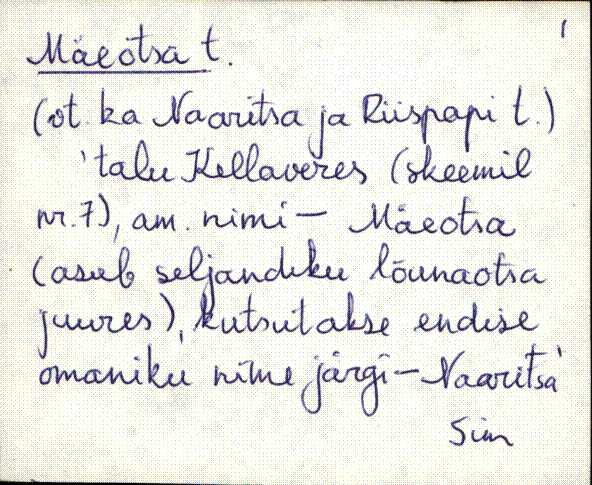 1
Mäeotsa t.
(vt. ka Naaritsa ja Riispapi t.)
'talu Kellaveres (skeemil
nr. 7), am. nimi – Mäeotsa
(asub seljandiku lõunaotsa
juures), kutsutakse endise
omaniku nime järgi – Naaritsa
Sim